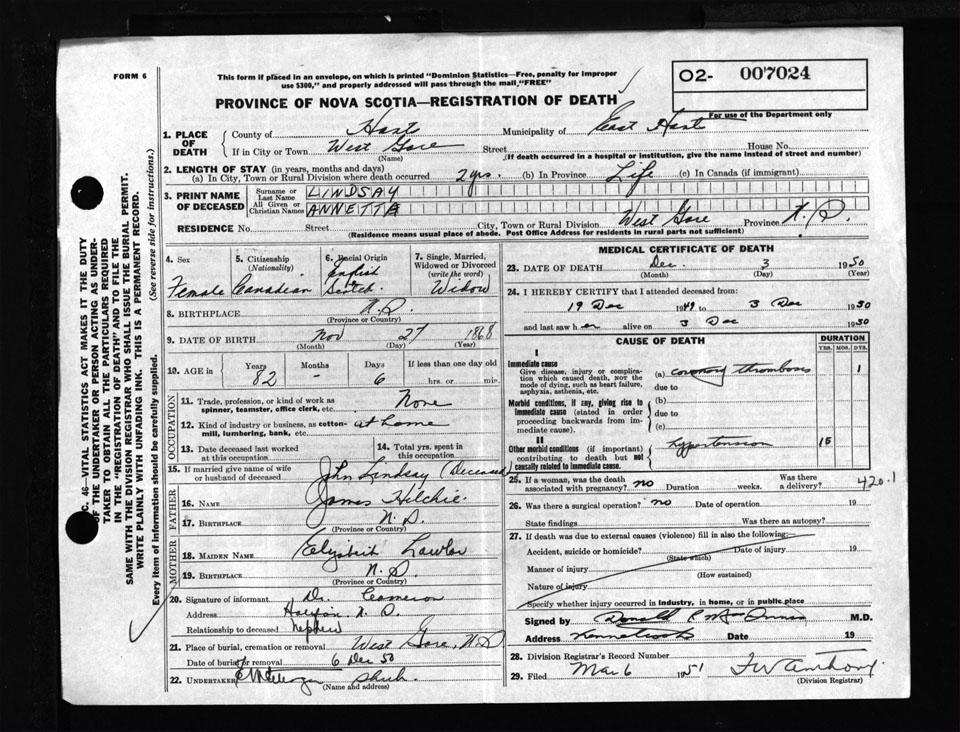 FORM 6
This form if placed in an envelope, on which is printed "Dominion Statistics—Free, penalty for improper
use $300," and properly addressed will pass through the mail, "FREE"
O2- 007024
For use of the Department only
PROVINCE OF NOVA SCOTIA—REGISTRATION OF DEATH
C. 46—VITAL STATISTICS ACT MAKES IT THE DUTY
OF THE UNDERTAKER OR PERSON ACTING AS UNDER-
TAKER TO OBTAIN ALL THE PARTICULARS REQUIRED
IN THE "REGISTRATION OF DEATH" AND TO FILE THE
SAME WITH THE DIVISION REGISTRAR WHO SHALL ISSUE THE BURIAL PERMIT.
WRITE PLAINLY WITH UNFADING INK. THIS IS A PERMANENT RECORD.
Every item of information should be carefully supplied. (See reverse side for instructions.)
1. PLACE OF DEATH
County of Hants Municipality of East Hants
If in City or Town West Gore Street House No.
(Name) (If death occurred in a hospital or institution, give the name instead of street and number)
2. LENGTH OF STAY (in years, months and days)
(a) In City, Town or Rural Division where death occurred 2 yrs. (b) In Province Life (c) In Canada (if immigrant)
3. PRINT NAME OF DECEASED
Surname or Last Name LINDSAY
All Given or Christian Names ANNETTA
RESIDENCE No. Street City, Town or Rural Division West Gore Province N.S.
(Residence means usual place of abode. Post Office Address for residents in rural parts not sufficient)
4. Sex Female
5. Citizenship (Nationality) Canadian
6. Racial Origin English Scotch
7. Single, Married, Widowed or Divorced (write the word) Widow
8. BIRTHPLACE N.S.
(Province or Country)
9. DATE OF BIRTH Nov 27 1868
(Month) (Day) (Year)
10. AGE in Years 82 Months - Days 6 If less than one day old hrs. or min.
OCCUPATION
11. Trade, profession, or kind of work as
spinner, teamster, office clerk, etc. None
12. Kind of industry or business, as cotton-
mill, lumbering, bank, etc. at home
13. Date deceased last worked at this occupation
14. Total yrs. spent in this occupation
15. If married give name of wife or husband of deceased John Lindsay (Deceased)
FATHER
16. NAME James Hilchie
17. BIRTHPLACE N.S.
(Province or Country)
MOTHER
18. MAIDEN NAME Elizabeth Lawlor
19. BIRTHPLACE N.S.
(Province or Country)
20. Signature of informant Dr. Cameron
Address N.S.
Relationship to deceased Nephew
21. Place of burial, cremation or removal West Gore, N.S.
Date of burial or removal 6 Dec 50
22. UNDERTAKER
(Name and address)
MEDICAL CERTIFICATE OF DEATH
23. DATE OF DEATH Dec. 3 1950
(Month) (Day) (Year)
24. I HEREBY CERTIFY that I attended deceased from:
19 Dec 1949 to 3 Dec 1950
and last saw her alive on 3 Dec 1950
CAUSE OF DEATH DURATION
YRS. MOS. DYS.
I
Immediate cause
Give disease, injury or complica-
tion which caused death, not the
mode of dying, such as heart failure,
asphyxia, asthenia, etc.
(a) coronary thrombosis 1
due to
Morbid conditions, if any, giving rise to
immediate cause (stated in order
proceeding backwards from im-
mediate cause).
(b)
due to
(c)
II
Other morbid conditions (if important)
contributing to death but not
causally related to immediate cause.
hypertension 15
25. If a woman, was the death associated with pregnancy? no Duration weeks. Was there a delivery?
420.1
26. Was there a surgical operation? no Date of operation 19
State findings Was there an autopsy?
27. If death was due to external causes (violence) fill in also the following:—
Accident, suicide or homicide? Date of injury 19
(State which)
Manner of injury
(How sustained)
Nature of injury
Specify whether injury occurred in industry, in home, or in public place
Signed by Donald M.D.
Address Kennetcook Date 19
28. Division Registrar's Record Number
29. Filed Mar 6 1951
(Division Registrar)